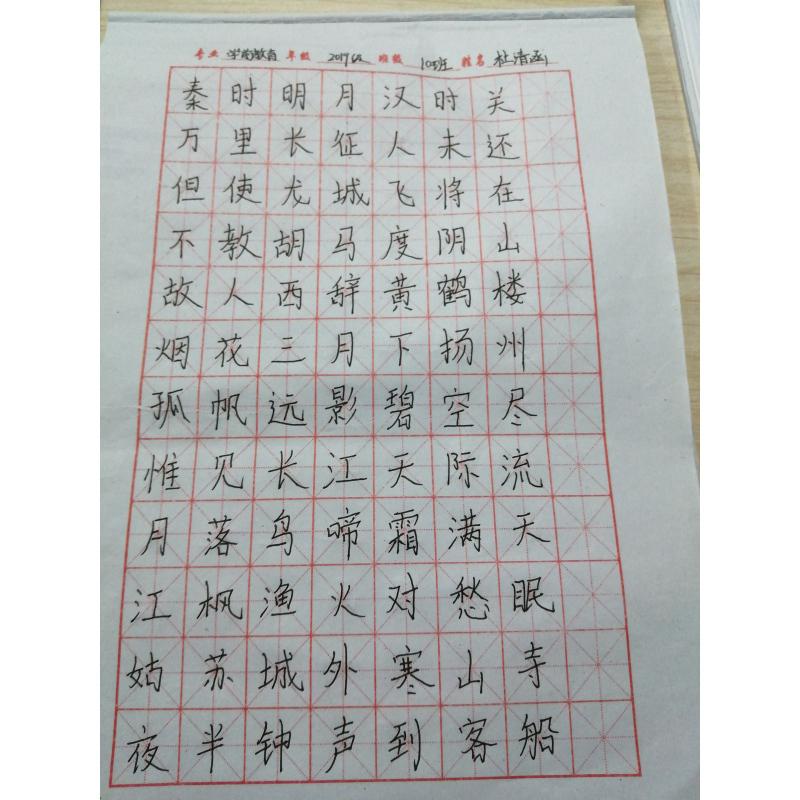 专业 学前教育 年级 2017级 班级 105班 姓名 杜清函
秦时明月汉时关
万里长征人未还
但使龙城飞将在
不教胡马度阴山
故人西辞黄鹤楼
烟花三月下扬州
孤帆远影碧空尽
惟见长江天际流
月落鸟啼霜满天
江枫渔火对愁眠
姑苏城外寒山寺
夜半钟声到客船